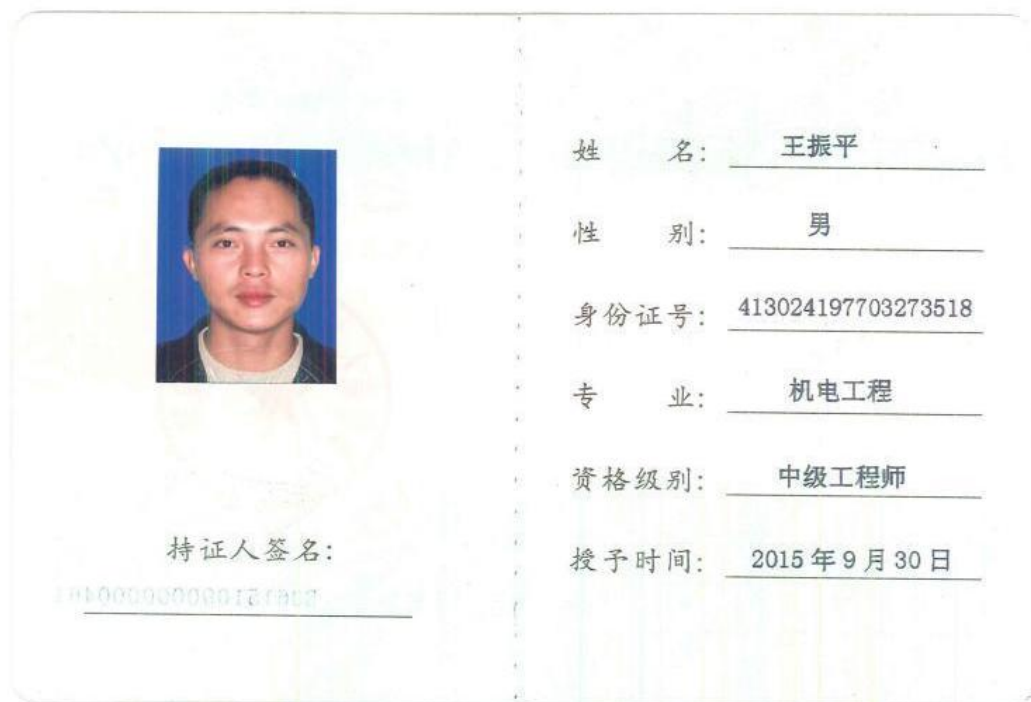 持证人签名:
姓 名: 王振平
性 别: 男
身份证号: 413024197703273518
专 业: 机电工程
资格级别: 中级工程师
授予时间: 2015年9月30日